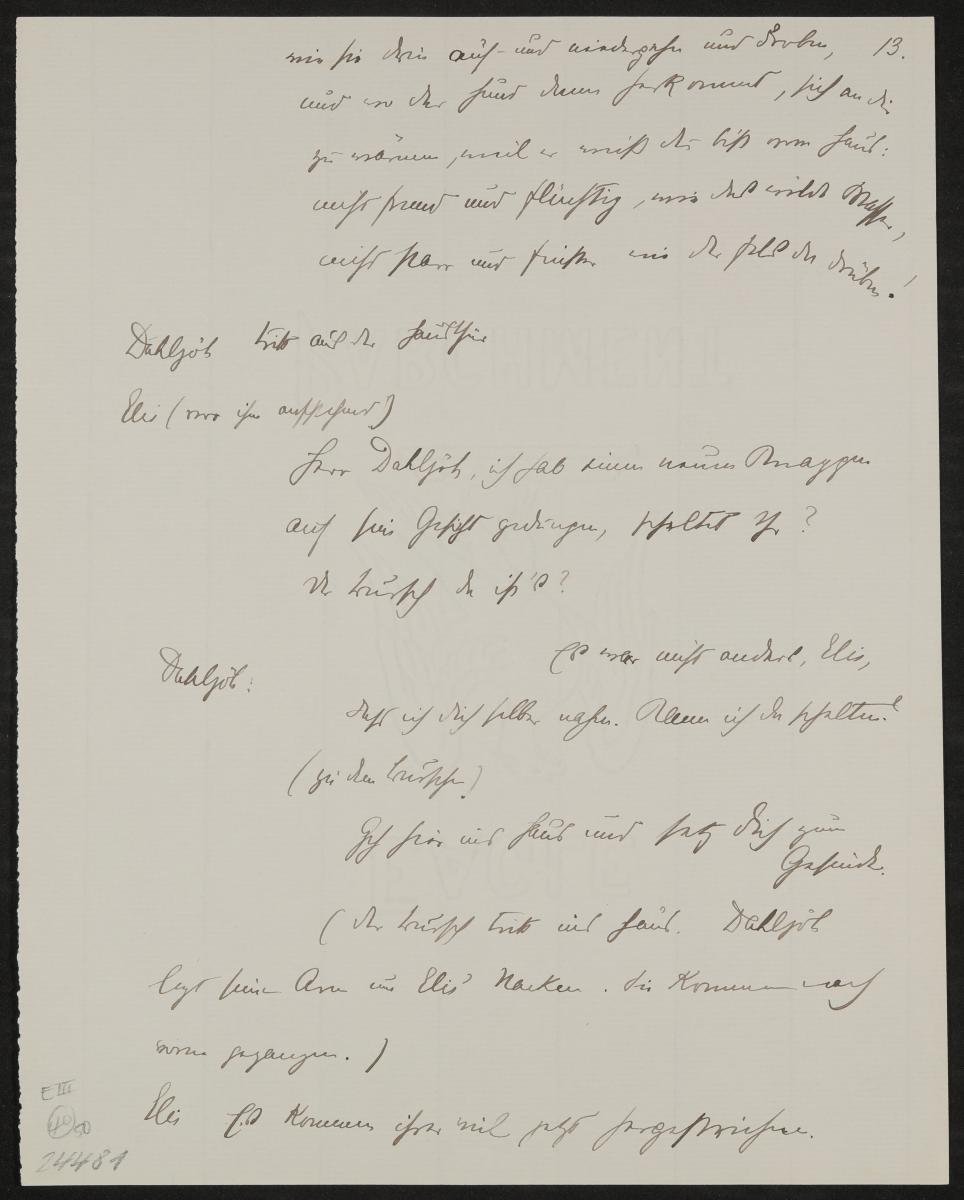 wie sie drin auf- und niedergehn und droben, 13.
und wo der Hund dann herkommt, sich an dir
zu wärmen, weil er weiß du bist vom Haus:
nicht fremd und flüchtig, wie das wilde Wasser,
nicht starr und finster wie der Fels da drüben!
Dahljöh tritt aus der Hausthür
Elis (vor ihm aufstehend)
Herr Dahljöh, ich hab einen neuen Knappen
auf sein Gesicht gedungen, scheltet Ihr?
Der Bursch da ist's?
Dahljöh: Es war nicht anders, Elis,
dass ich dich selber nahm. Kann ich da schelten?
(zu dem Burschen)
Geh hier ins Haus und setz dich zum
Gesinde.
(der Bursch tritt ins Haus. Dahljöh
legt seinen Arm um Elis' Nacken. Sie kommen nach
vorne gegangen.)
Elis Es kommen ihrer viel jetzt hergestrichen.
E III
40 50
24481